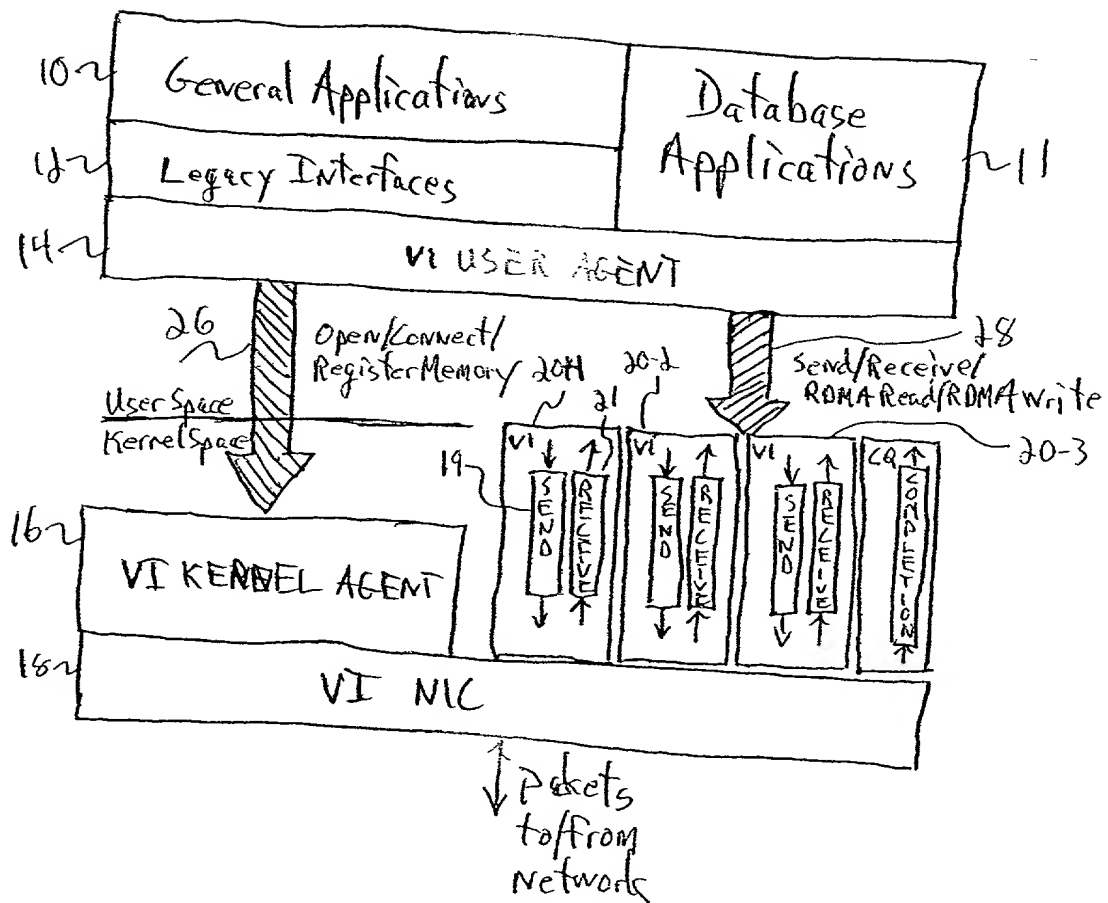 10
General Applications
Database
Applications
11
12
Legacy Interfaces
14
VI USER AGENT
26
Open/Connect/
Register Memory
20-1
20-2
21
28
Send/Receive/
RDMA Read/RDMA Write
User Space
Kernel Space
19
VI
SEND
RECEIVE
VI
SEND
RECEIVE
VI
SEND
RECEIVE
CQ
COMPLETION
20-3
16
VI KERNEL AGENT
18
VI NIC
Packets
to/from
Network